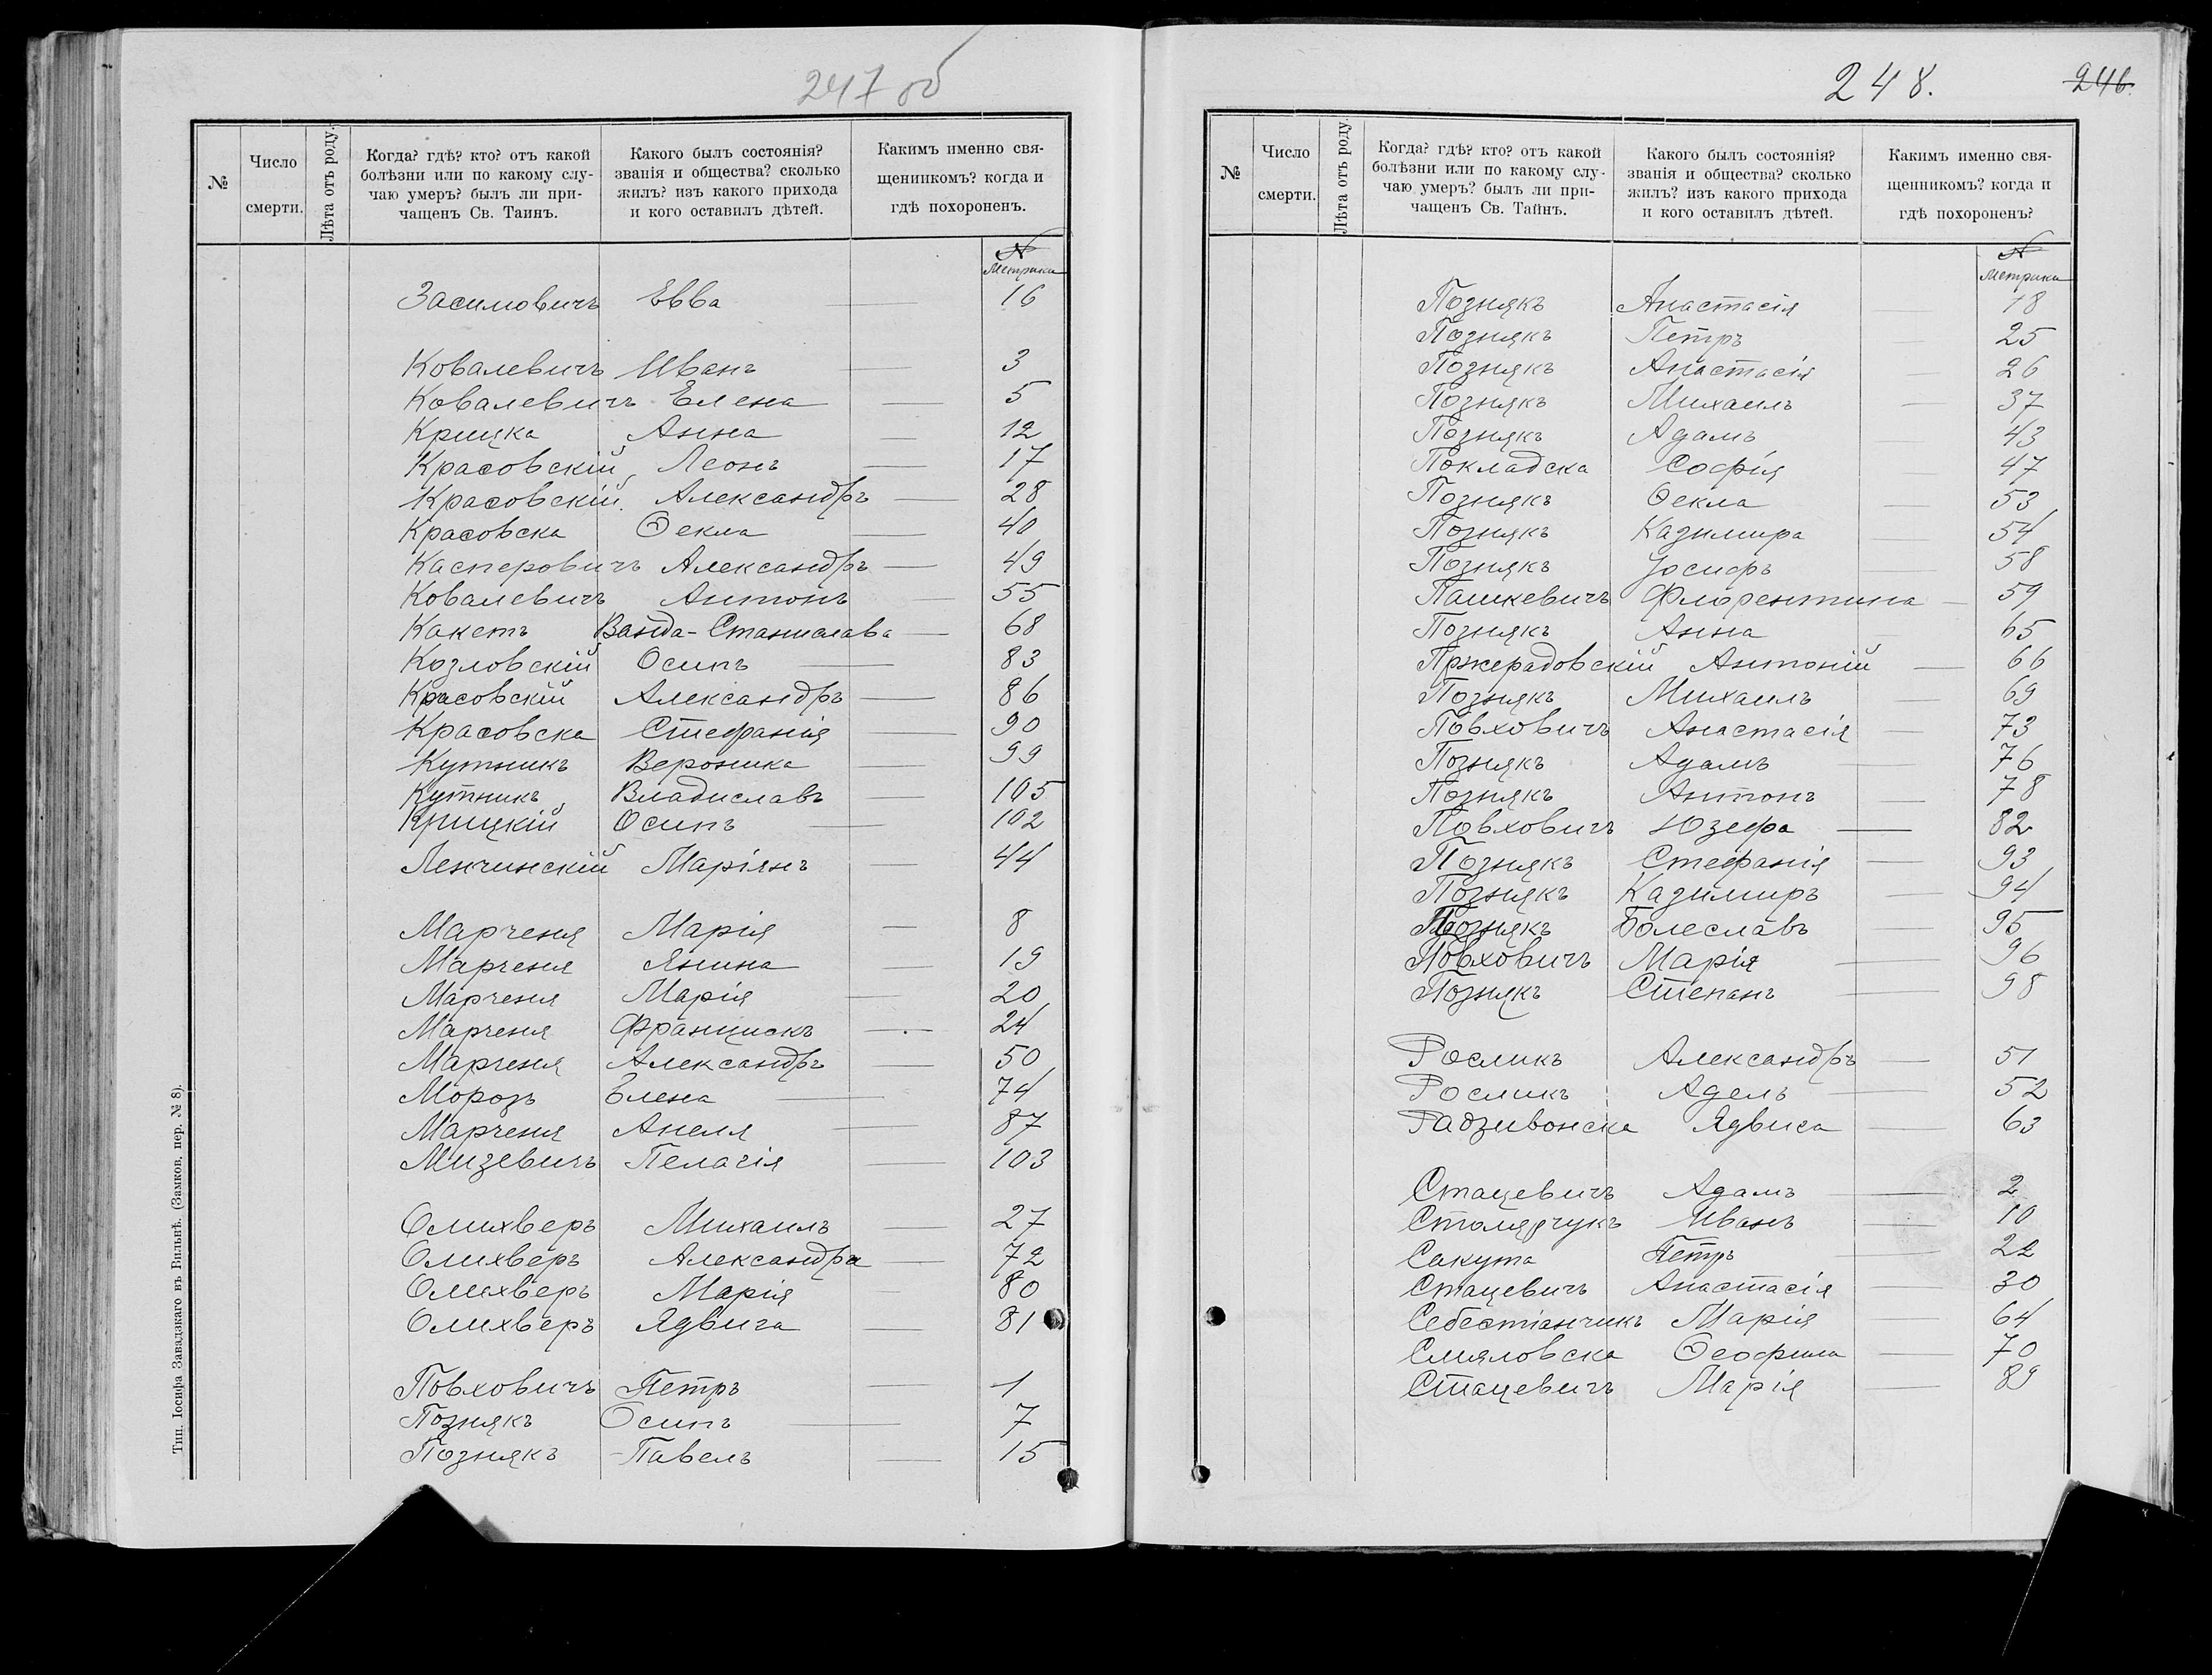 247 об
№
Число
смерти.
Лѣта отъ роду.
Когда? гдѣ? кто? отъ какой
болѣзни или по какому слу-
чаю умеръ? былъ ли при-
чащенъ Св. Таинъ.
Какого былъ состоянія?
званія и общества? сколько
жилъ? изъ какого прихода
и кого оставилъ дѣтей.
Какимъ именно свя-
щенникомъ? когда и
гдѣ похороненъ.
№
Метрики
Засимовичъ Евва — 16
Ковалевичъ Иванъ — 3
Ковалевичъ Елена — 5
Крицка Анна — 12
Красовскій Леонъ — 17
Красовскій Александръ — 28
Красовска Ѳекла — 40
Касперовичъ Александръ — 49
Ковалевичъ Антонъ — 55
Какеть Ванда-Станислава — 68
Козловскій Осипъ — 83
Красовскій Александръ — 86
Красовска Стефанія — 90
Кутникъ Вероника — 99
Кутникъ Владиславъ — 105
Крицкій Осипъ — 102
Ленчинскій Маріянъ — 44
Марченя Марія — 8
Марченя Янина — 19
Марченя Марія — 20
Марченя Францискъ — 24
Марченя Александръ — 50
Морозъ Елена — 74
Марченя Анеля — 87
Мизевичъ Пелагія — 103
Олихверъ Михаилъ — 27
Олихверъ Александра — 72
Олихверъ Марія — 80
Олихверъ Ядвига — 81
Повховичъ Петръ — 1
Познякъ Осипъ — 7
Познякъ Павелъ — 15
Тип. Іосифа Завадзкаго въ Вильнѣ. (Замков. пер. № 8).
248.
246.
№
Число
смерти.
Лѣта отъ роду.
Когда? гдѣ? кто? отъ какой
болѣзни или по какому слу-
чаю умеръ? былъ ли при-
чащенъ Св. Тайнъ.
Какого былъ состоянія?
званія и общества? сколько
жилъ? изъ какого прихода
и кого оставилъ дѣтей.
Какимъ именно свя-
щенникомъ? когда и
гдѣ похороненъ?
№
Метрики
Познякъ Анастасія — 18
Познякъ Петръ — 25
Познякъ Анастасія — 26
Познякъ Михаилъ — 37
Познякъ Адамъ — 43
Покладска Софія — 47
Познякъ Ѳекла — 53
Познякъ Казимира — 54
Познякъ Іосифъ — 58
Пашкевичъ Флорентина — 59
Познякъ Анна — 65
Пржерадовскій Антоній — 66
Познякъ Михаилъ — 69
Повховичъ Анастасія — 73
Познякъ Адамъ — 76
Познякъ Антонъ — 78
Повховичъ Юзефа — 82
Познякъ Стефанія — 93
Познякъ Казимиръ — 94
Познякъ Болеславъ — 95
Повховичъ Марія — 96
Познякъ Степанъ — 98
Росликъ Александръ — 51
Росликъ Адель — 52
Радзивонска Ядвига — 63
Стацевичъ Адамъ — 2
Столярчукъ Иванъ — 10
Сакута Петръ — 22
Стацевичъ Анастасія — 30
Себестіанчикъ Марія — 64
Смяловска Ѳеофила — 70
Стацевичъ Марія — 89